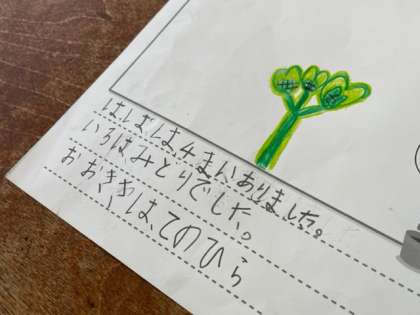 はっぱは、4まいありました。
いろはみどりでした。
おおきさは、てのひら